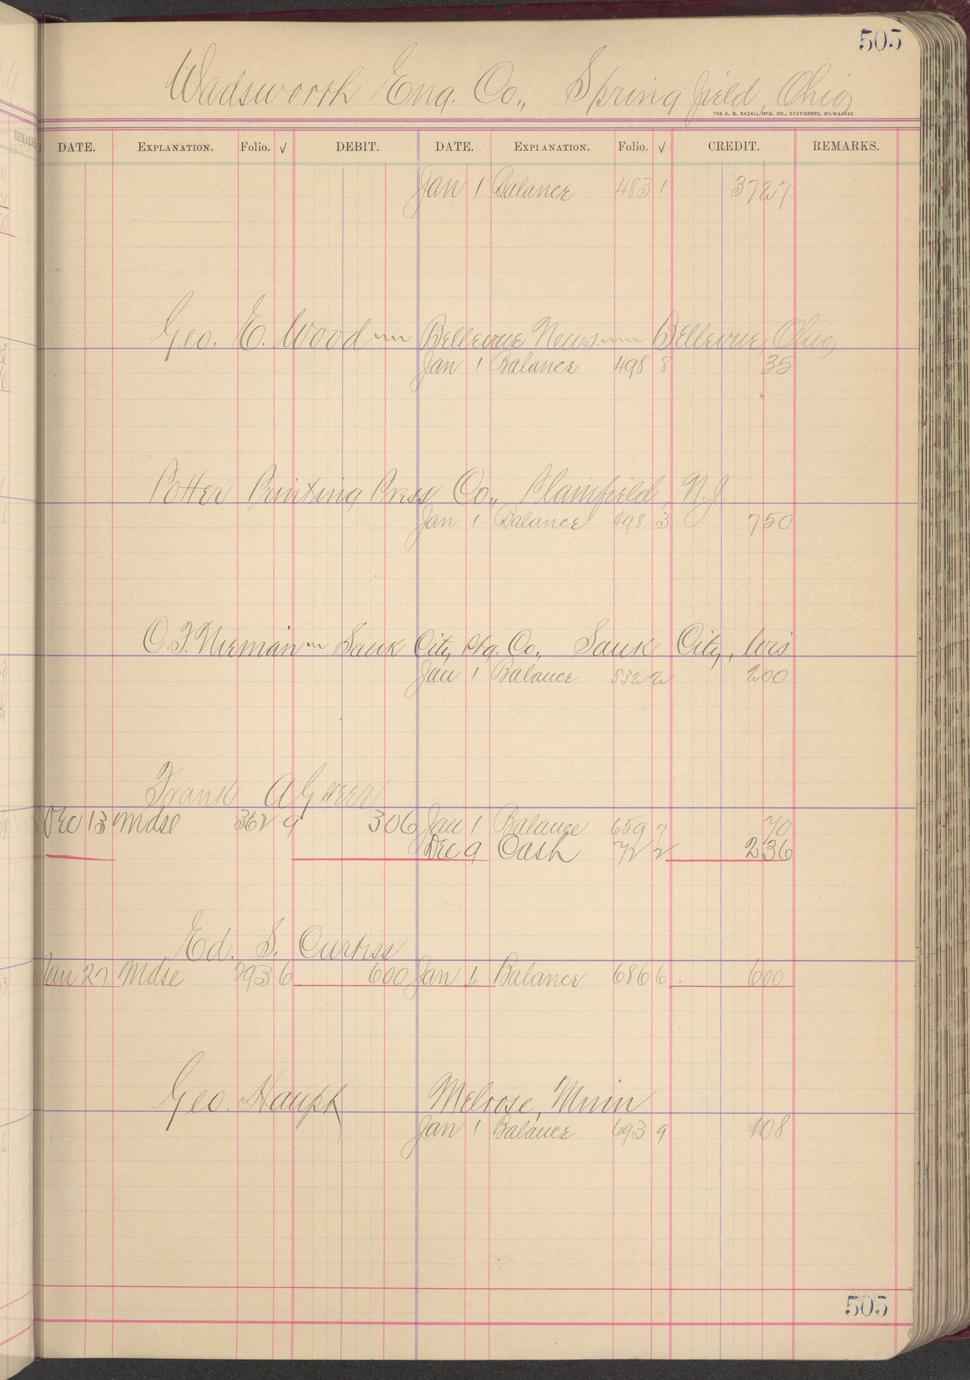 505
Wadsworth Eng. Co., Springfield, Ohio
THE H. G. RAZALL MFG. CO., STATIONERS, MILWAUKEE.
DATE. EXPLANATION. Folio. √ DEBIT. DATE. EXPLANATION. Folio. √ CREDIT. REMARKS.
Jan 1 Balance 483 1 3727
Geo. E. Wood Bellevue News Bellevue, Ohio
Jan 1 Balance 498 8 35
Potter Printing Press Co., Plainfield, N.J.
Jan 1 Balance 498 3 750
O.F. Nieman Sauk City Ptg. Co., Sauk City, Wis
Jan 1 Balance 532 2 200
Frank A Greer
Dec 13 Mdse 362 9 306 Jan 1 Balance 659 7 70
Dec 9 Cash 72 2 236
Ed. S. Curtiss
Jan 27 Mdse 293 6 600 Jan 1 Balance 686 6 600
Geo. Haupt Melrose, Minn
Jan 1 Balance 693 9 108
505